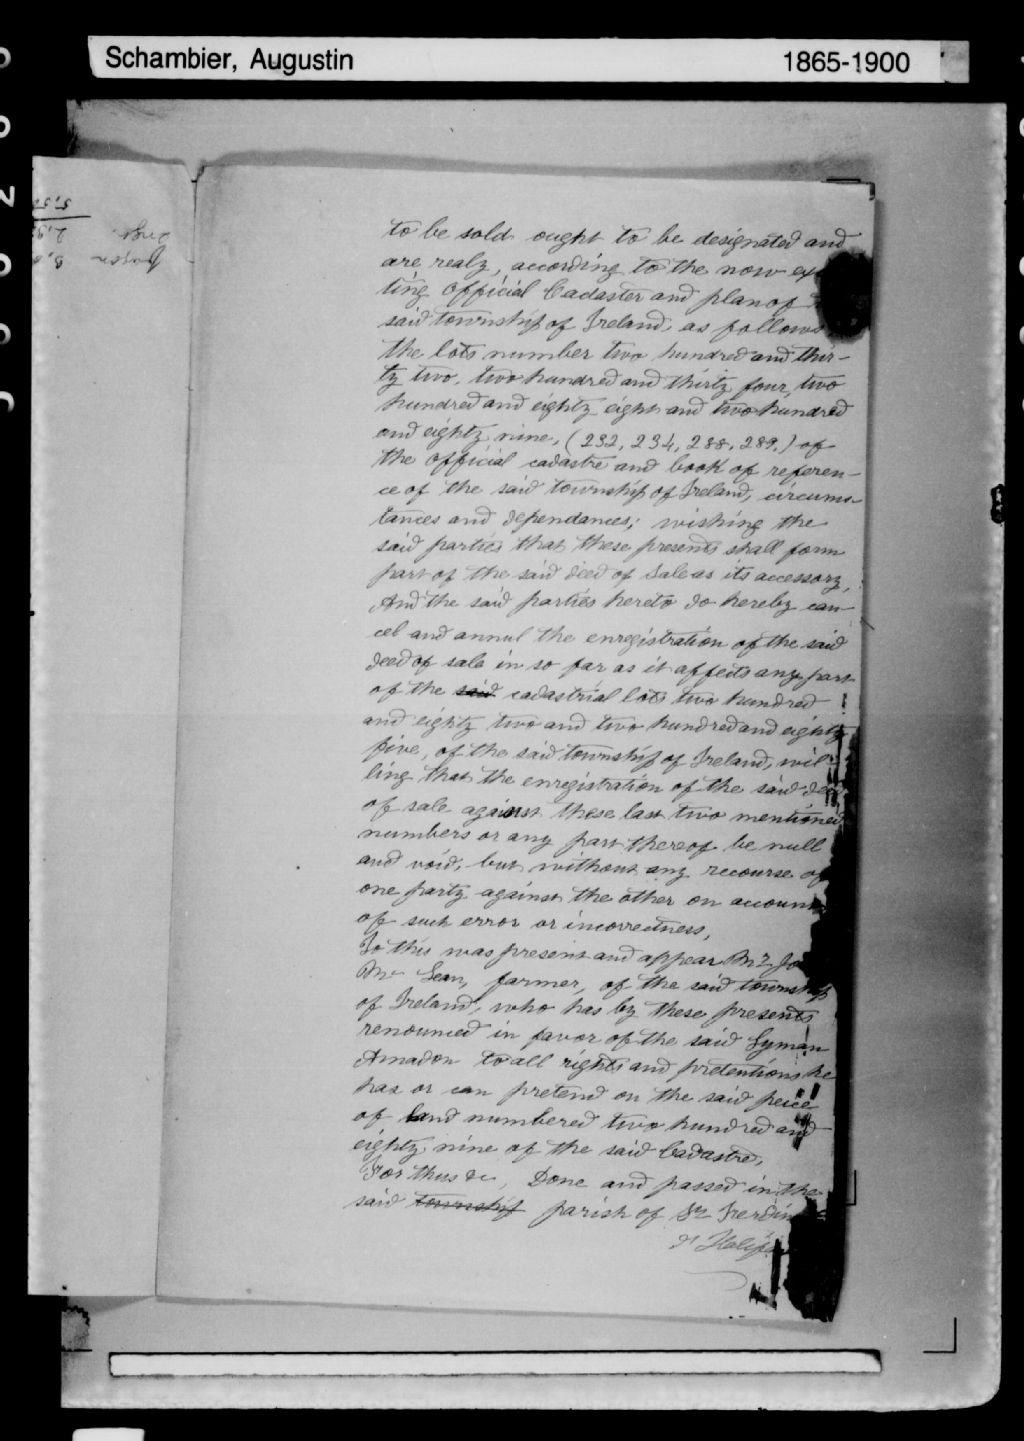 Schambier, Augustin 1865-1900
to be sold ought to be designated and
are realy, according to the now ex
ting official Cadaster and plan of
said township of Ireland, as follows
the lots number two hundred and thir-
ty two, two hundred and thirty four, two
hundred and eighty eight and two hundred
and eighty nine, (232, 234, 288, 289,) of
the official cadastre and book of referen-
ce of the said township of Ireland, circums-
tances and dependances; wishing the
said parties that these presents shall form
part of the said deed of sale as its accessory,
And the said parties hereto do hereby can-
cel and annul the enregistration of the said
deed of sale in so far as it affects any part
of the said cadastrial lots two hundred
and eighty two and two hundred and eighty
five, of the said township of Ireland, wil-
ling that the enregistration of the said deed
of sale against these last two mentioned
numbers or any part thereof be null
and void, but without any recourse of
one party against the other on account
of such error or incorrectness,
To this was present and appear Mr Jo
Mc Lean, farmer, of the said township
of Ireland, who has by these presents
renounced in favor of the said Lyman
Amadon to all rights and pretentions he
has or can pretend on the said peice
of land numbered two hundred and
eighty nine of the said Cadastre,
For thus &c, Done and passed in the
said township parish of St Ferdin
d'Halifax